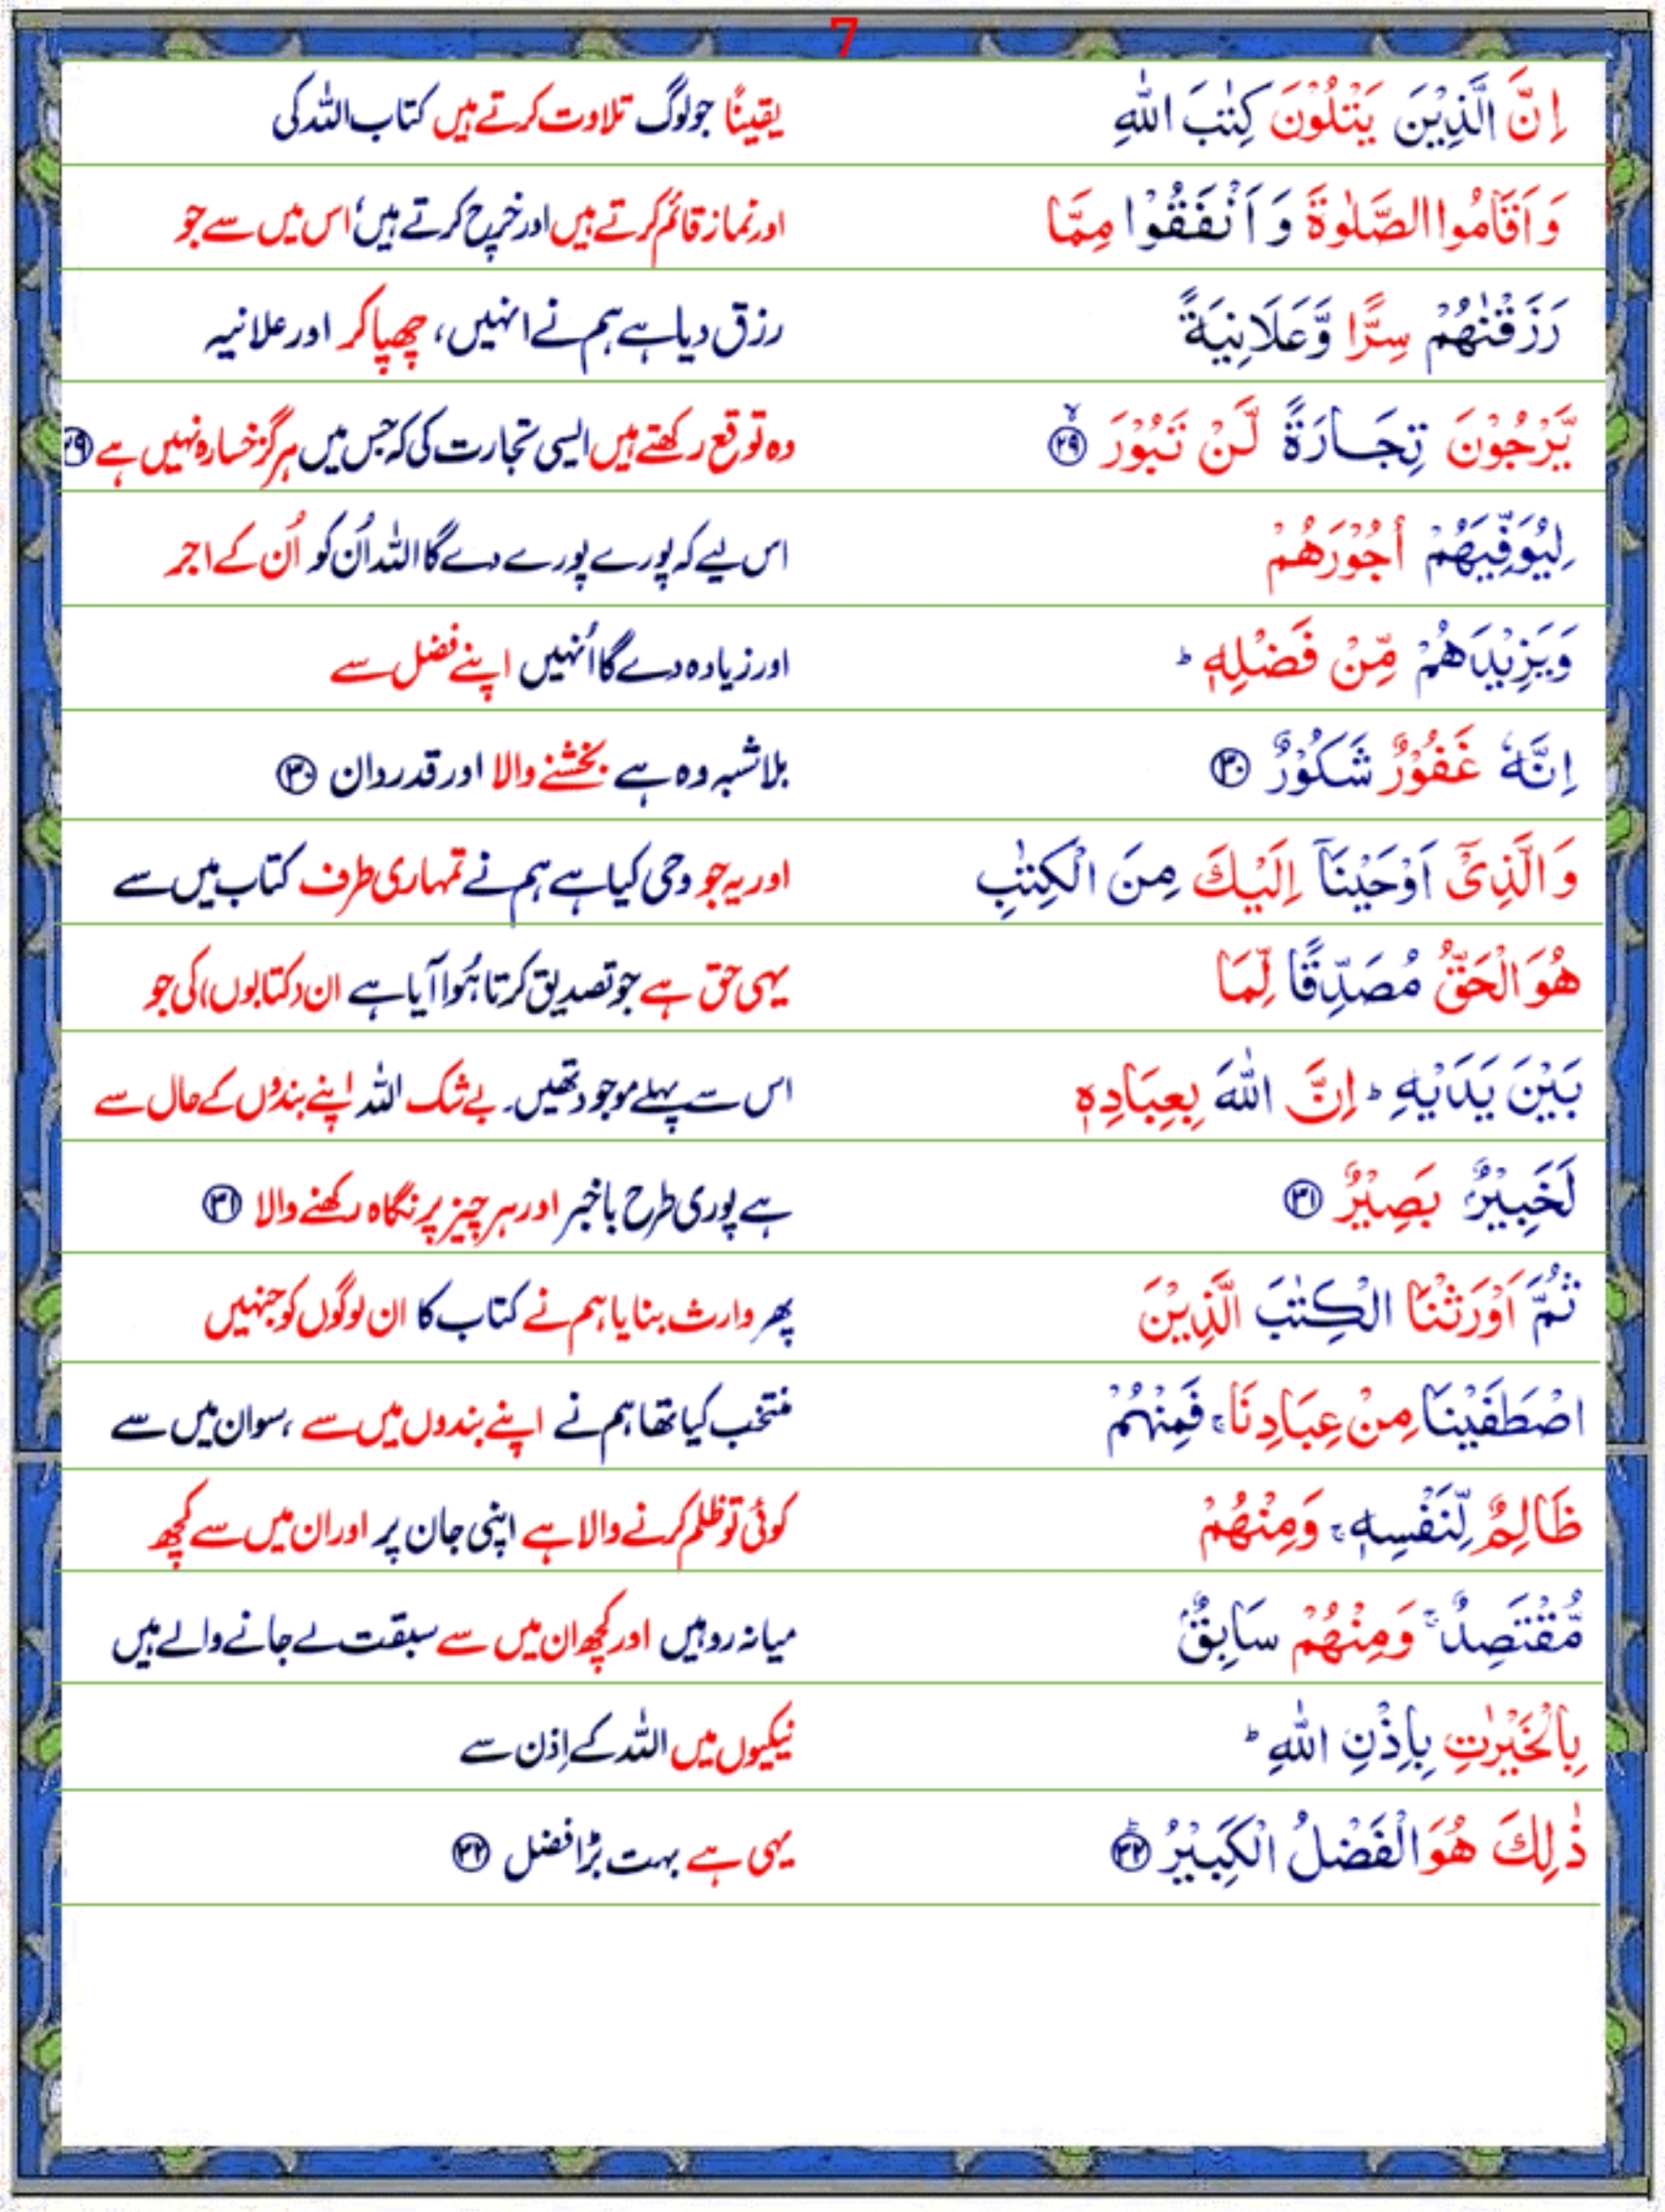 7
اِنَّ الَّذِيْنَ يَتْلُوْنَ كِتٰبَ اللّٰهِ یقینًا جو لوگ تلاوت کرتے ہیں کتاب اللہ کی
وَ اَقَامُوا الصَّلٰوةَ وَ اَنْفَقُوْا مِمَّا اور نماز قائم کرتے ہیں اور خرچ کرتے ہیں، اس میں سے جو
رَزَقْنٰهُمْ سِرًّا وَّعَلَانِيَةً رزق دیا ہے ہم نے انہیں، چھپا کر اور علانیہ
يَّرْجُوْنَ تِجَارَةً لَّنْ تَبُوْرَ ۙ﴿۲۹﴾ وہ توقع رکھتے ہیں ایسی تجارت کی کہ جس میں ہرگز خسارہ نہیں ہے ﴿۲۹﴾
لِيُوَفِّيَهُمْ اُجُوْرَهُمْ اس لیے کہ پورے پورے دے گا اللہ اُن کو اُن کے اجر
وَيَزِيْدَهُمْ مِّنْ فَضْلِهٖ ؕ اور زیادہ دے گا اُنہیں اپنے فضل سے
اِنَّهٗ غَفُوْرٌ شَكُوْرٌ ﴿۳۰﴾ بلاشبہ وہ ہے بخشنے والا اور قدردان ﴿۳۰﴾
وَ الَّذِيْۤ اَوْحَيْنَاۤ اِلَيْكَ مِنَ الْكِتٰبِ اور یہ جو وحی کیا ہے ہم نے تمہاری طرف کتاب میں سے
هُوَ الْحَقُّ مُصَدِّقًا لِّمَا یہی حق ہے جو تصدیق کرتا ہُوا آیا ہے ان (کتابوں) کی جو
بَيْنَ يَدَيْهِ ؕ اِنَّ اللّٰهَ بِعِبَادِهٖ اس سے پہلے موجود تھیں۔ بے شک اللہ اپنے بندوں کے حال سے
لَخَبِيْرٌۢ بَصِيْرٌ ﴿۳۱﴾ ہے پوری طرح باخبر اور ہر چیز پر نگاہ رکھنے والا ﴿۳۱﴾
ثُمَّ اَوْرَثْنَا الْكِتٰبَ الَّذِيْنَ پھر وارث بنایا ہم نے کتاب کا ان لوگوں کو جنہیں
اصْطَفَيْنَا مِنْ عِبَادِنَا ۚ فَمِنْهُمْ منتخب کیا تھا ہم نے اپنے بندوں میں سے ، سو ان میں سے
ظَالِمٌ لِّنَفْسِهٖ ۚ وَمِنْهُمْ کوئی تو ظلم کرنے والا ہے اپنی جان پر اور ان میں سے کچھ
مُّقْتَصِدٌ ۚ وَمِنْهُمْ سَابِقٌۢ میانہ رو ہیں اور کچھ ان میں سے سبقت لے جانے والے ہیں
بِالْخَيْرٰتِ بِاِذْنِ اللّٰهِ ؕ نیکیوں میں اللہ کے اِذن سے
ذٰلِكَ هُوَ الْفَضْلُ الْكَبِيْرُ ؕ﴿۳۲﴾ یہی ہے بہت بڑا فضل ﴿۳۲﴾